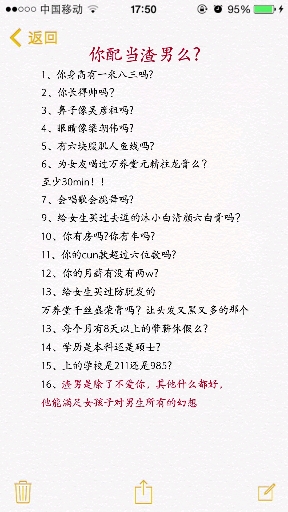 中国移动 17:50 95%
返回
你配当渣男么?
1、你身高有一米八三吗?
2、你长得帅吗?
3、鼻子像吴彦祖吗?
4、眼睛像梁朝伟吗?
5、有六块腹肌人鱼线吗?
6、为女友喝过万养堂元精拄龙膏么?
至少30min!!
7、会唱歌会跳舞吗?
9、给女生买过去逗的沐小白清颜六白膏吗?
10、你有房吗?你有车吗?
11、你的cun款超过六位数吗?
12、你的月薪有没有两w?
13、给女生买过防脱发的
万养堂千丝盛荣膏吗?让头发又黑又多的那个
13、每个月有8天以上的带薪休假么?
14、学历是本科还是硕士?
15、上的学校是211还是985?
16、渣男是除了不爱你，其他什么都好，
他能满足女孩子对男生所有的幻想